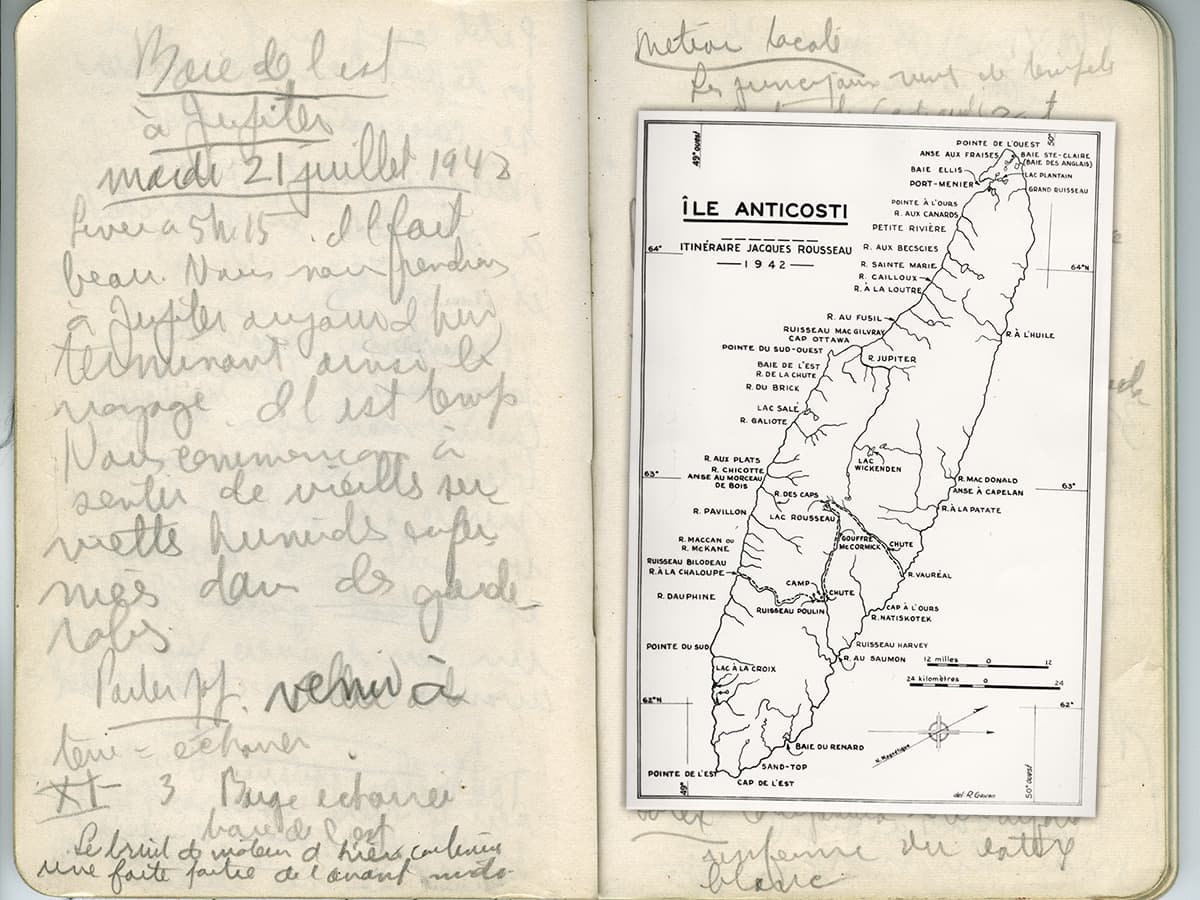 Baie de l'est
à Jupiter
mardi 21 juillet 1942
Lever a 5h.15. Il fait
beau. Nous nous rendons
à Jupiter aujourd'hui
terminant ainsi le
voyage. Il est temps
Nous commençons à
sentir de vieilles ser
viettes humides enfer
mées dans des garde-
robes.
Parler pop. venir à
terre = échouer
XI- 3 Barge échouée
baie de l'est
Le bruit de moteur d'hier continue
une forte partie de l'avant-midi
Météor locale
Les principaux vents de tempête
ÎLE ANTICOSTI
ITINÉRAIRE JACQUES ROUSSEAU
1942
49° OUEST
50°
POINTE DE L'OUEST
ANSE AUX FRAISES
BAIE STE-CLAIRE
(BAIE DES ANGLAIS)
BAIE ELLIS
LAC PLANTAIN
PORT-MENIER
GRAND RUISSEAU
POINTE À L'OURS
R. AUX CANARDS
PETITE RIVIÈRE
64°
R. AUX BECSCIES
R. SAINTE MARIE
64°N
R. CAILLOUX
R. À LA LOUTRE
R. AU FUSIL
RUISSEAU MAC GILVRAY
R. À L'HUILE
CAP OTTAWA
POINTE DU SUD-OUEST
R. JUPITER
BAIE DE L'EST
R. DE LA CHUTE
R. DU BRICK
LAC SALÉ
R. GALIOTE
R. AUX PLATS
LAC
WICKENDEN
63°
R. CHICOTTE
ANSE AU MORCEAU
DE BOIS
R. MAC DONALD
63°
ANSE À CAPELAN
R. DES CAPS
R. À LA PATATE
R. PAVILLON
LAC ROUSSEAU
GOUFFRE
McCORMICK
CHUTE
R. MACCAN OU
R. McKANE
RUISSEAU BILODEAU
R. À LA CHALOUPE
R. VAURÉAL
CAMP
CHUTE
R. DAUPHINE
RUISSEAU POULIN
CAP À L'OURS
R. NATISKOTEK
POINTE DU SUD
RUISSEAU HARVEY
R. AU SAUMON
12 milles 0 12
LAC À LA CROIX
24 kilomètres 0 24
62°N
62°
N. Magnétique
BAIE DU RENARD
SAND-TOP
POINTE DE L'EST
CAP DE L'EST
49°
50° OUEST
del R. Gauvin
du latex
blanc